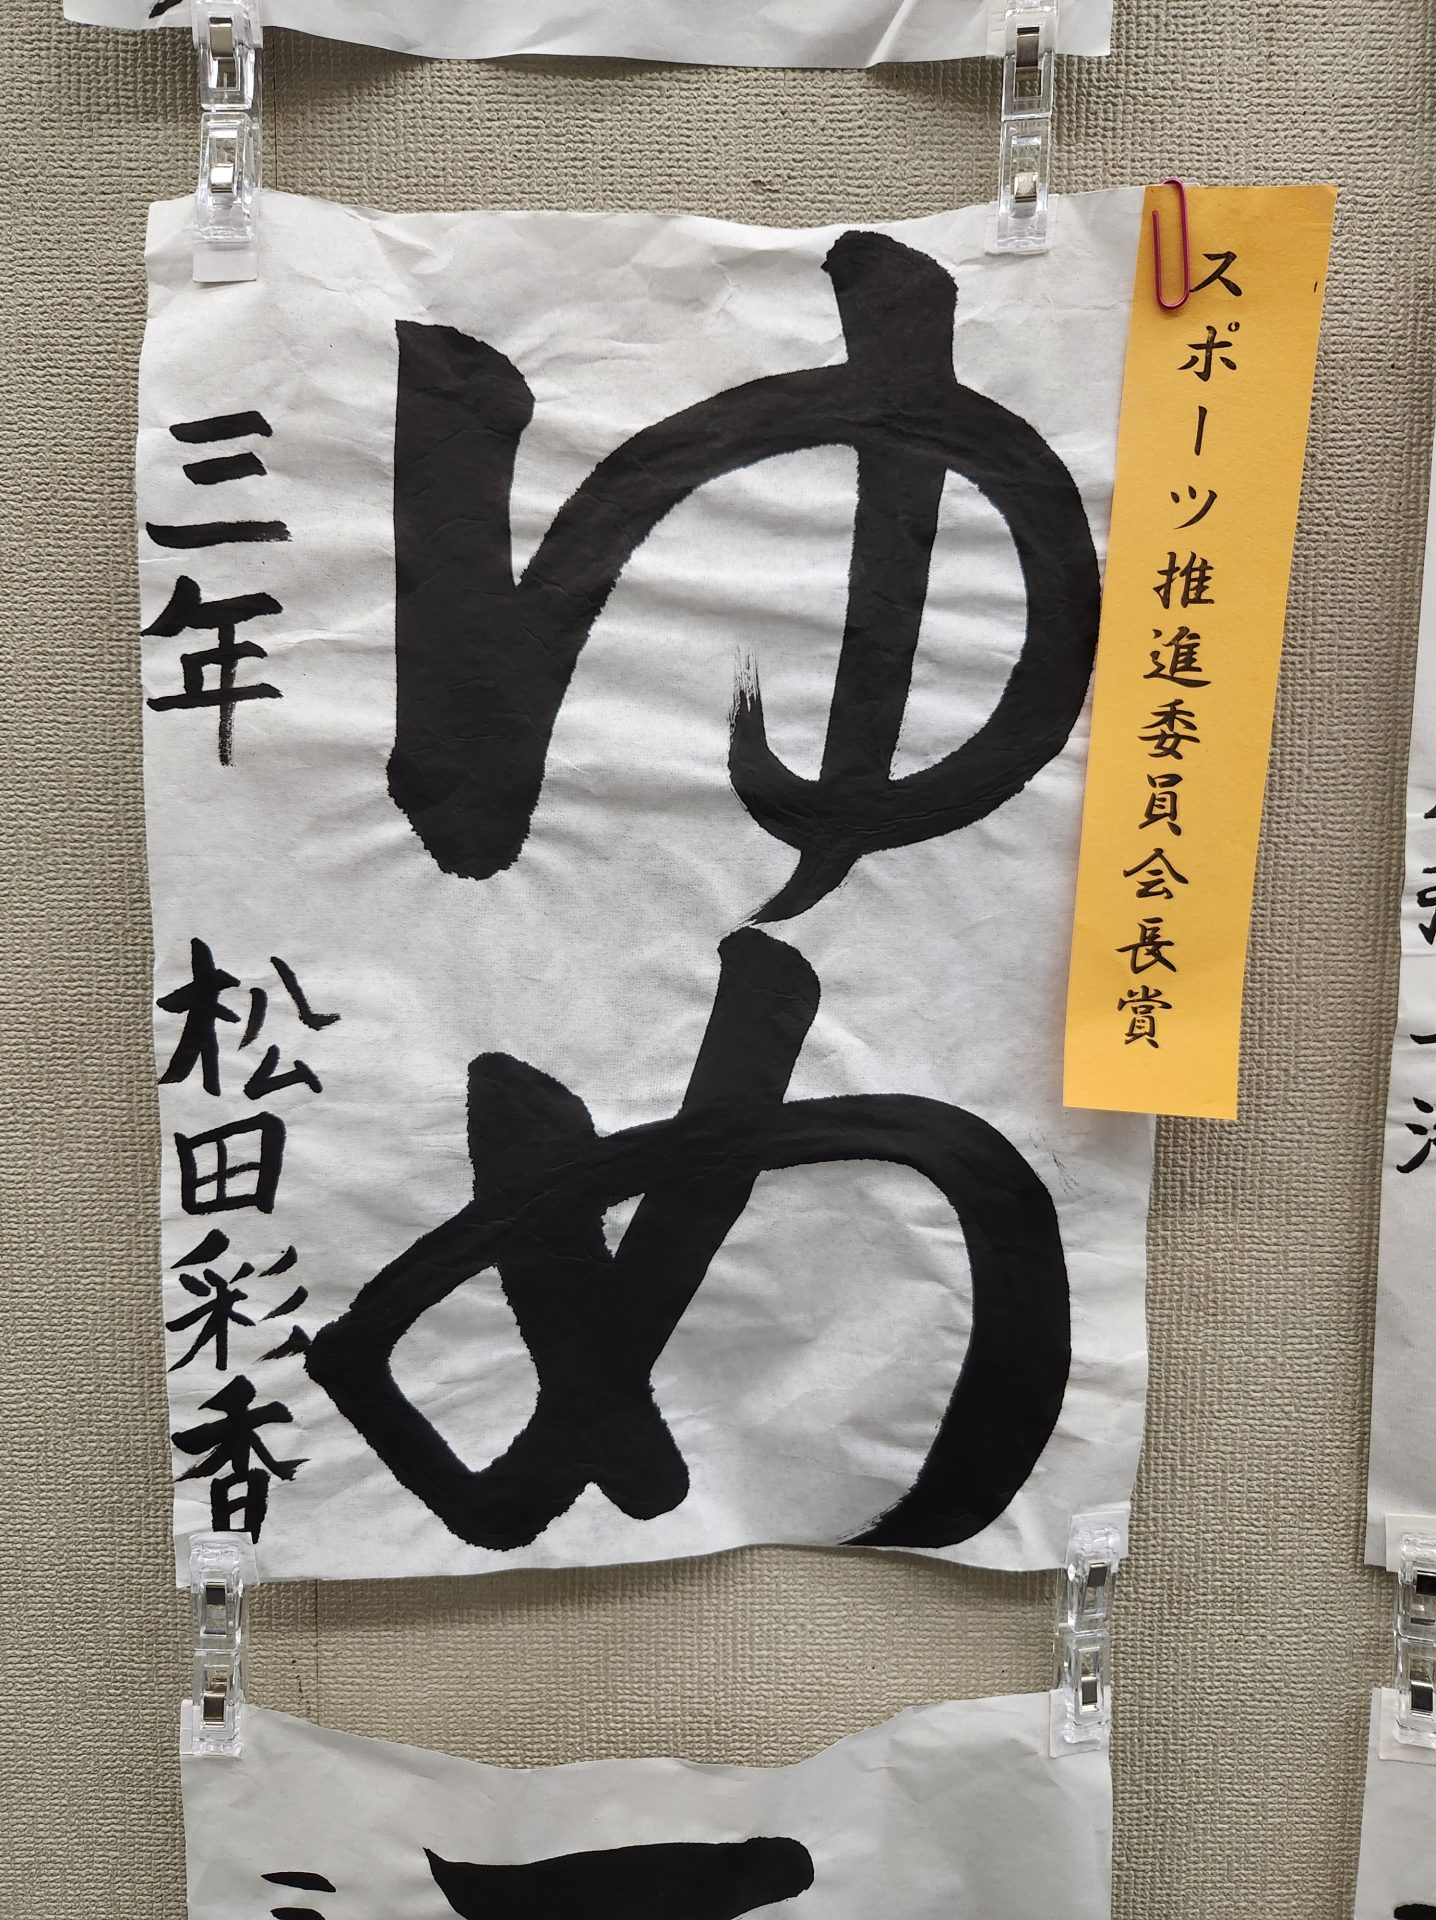 スポーツ推進委員会長賞
ゆめ
三年 松田彩香
三